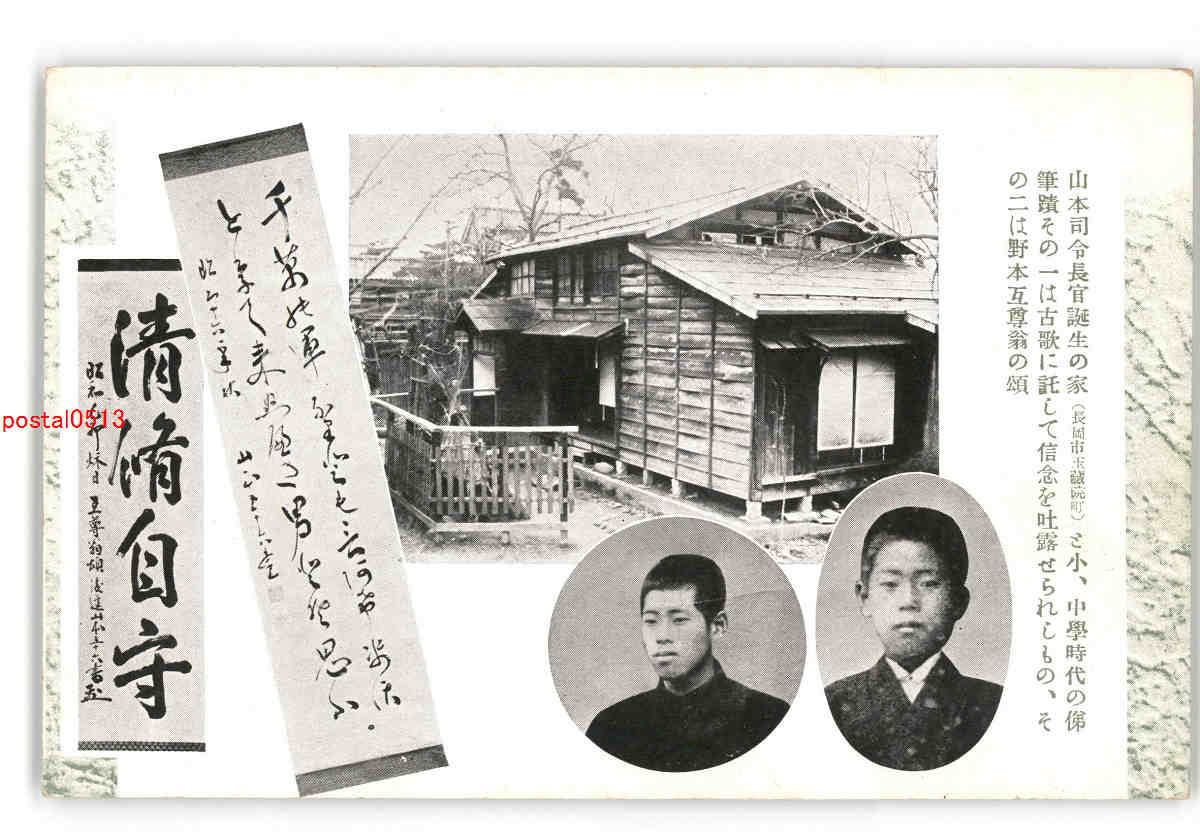 山本司令長官誕生の家(長岡市玉蔵院町)と小、中學時代の俤
筆蹟その一は古歌に託して信念を吐露せられしもの、そ
の二は野本互尊翁の頌
千萬の軍なりとも言擧せず
とりて来ぬべき男とぞ思ふ
昭和十六年秋
山本五十六書
清脩自守
互尊翁頌 後進山本五十六書
postal0513